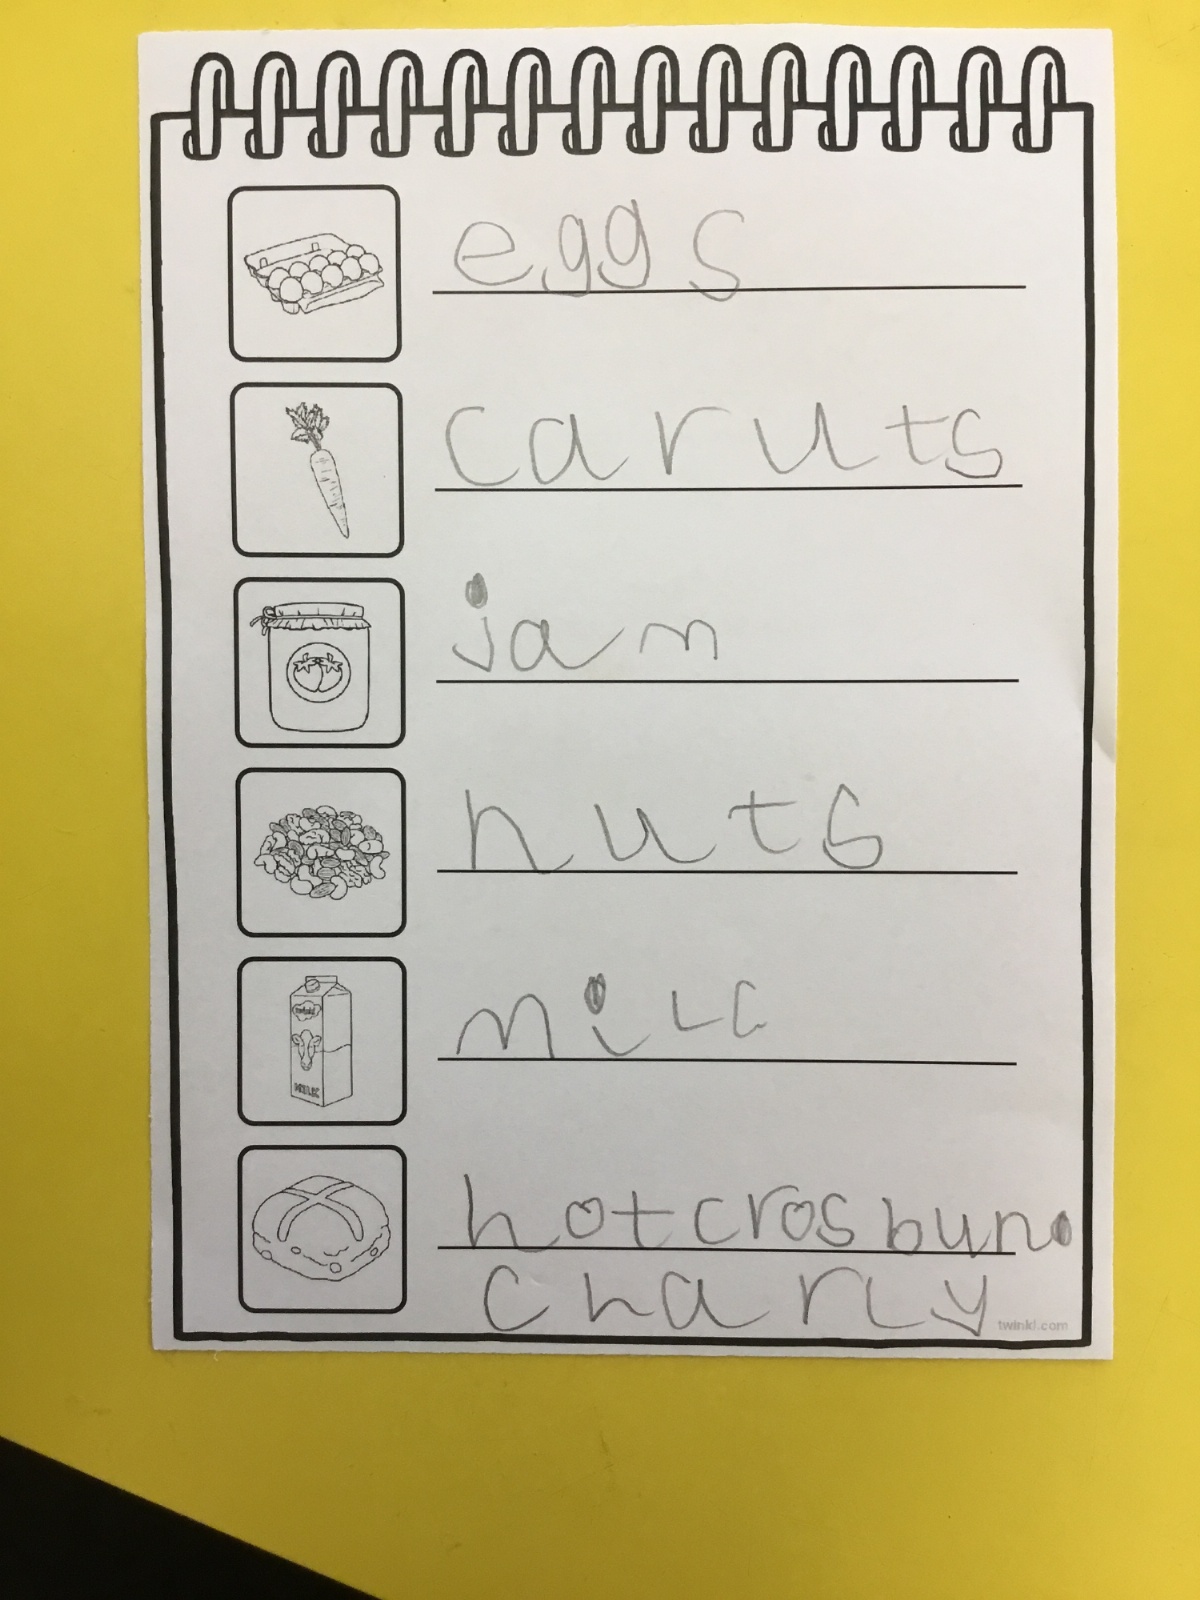 eggs
caruts
jam
nuts
twinkl
MILK
milc
hot cros bun.
charly
twinkl.com